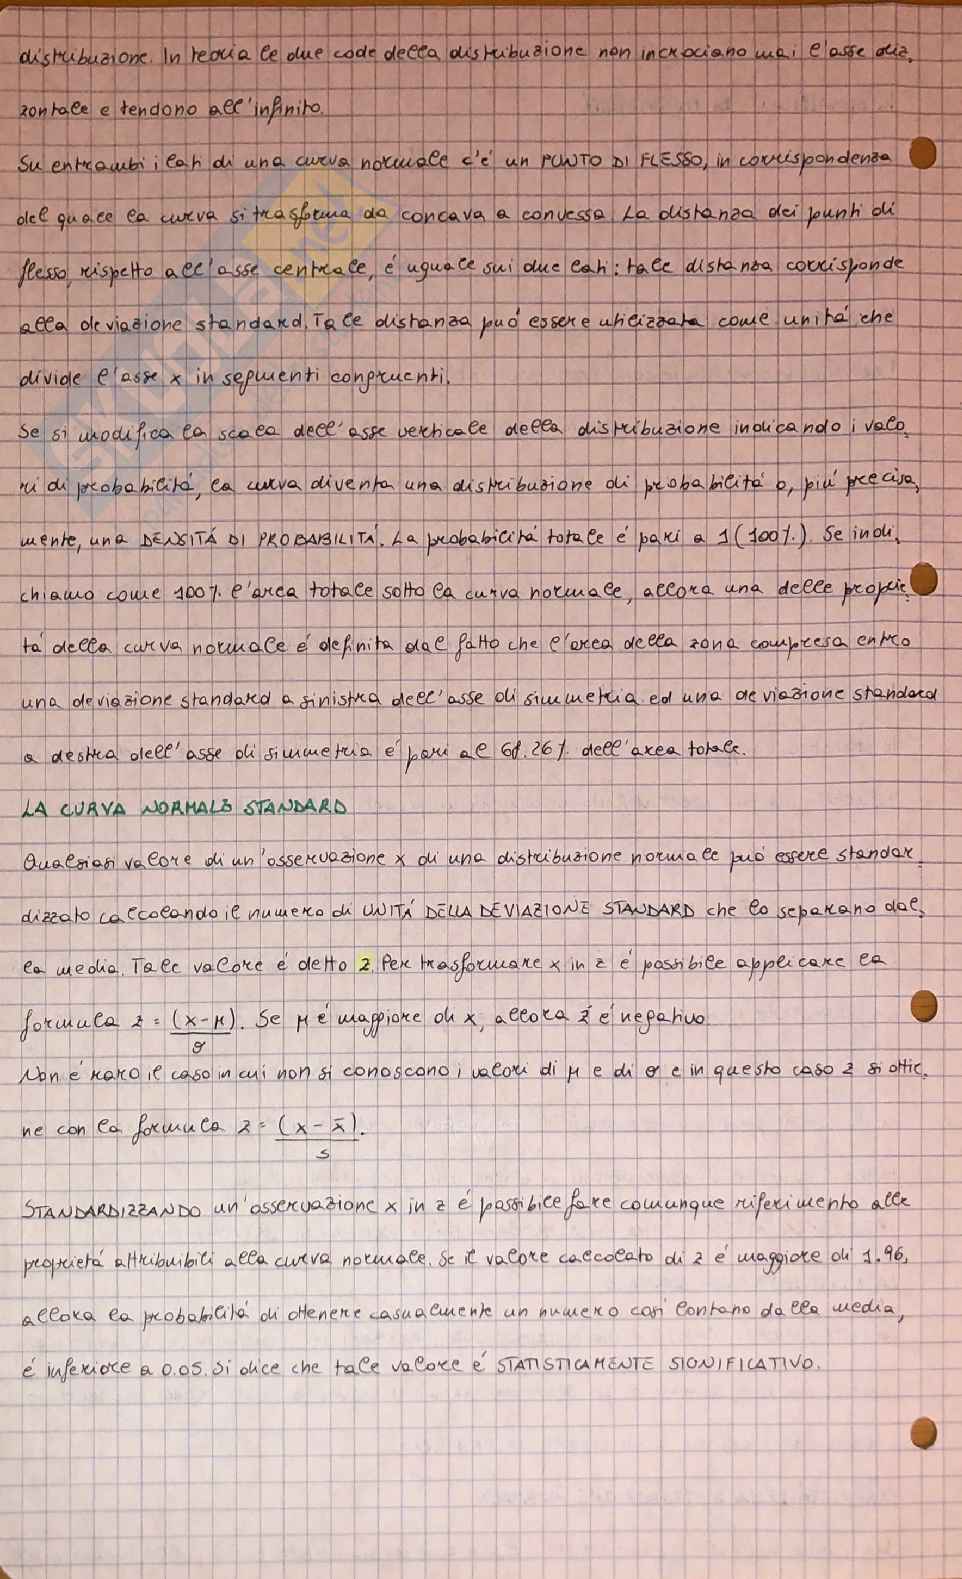 distribuzione. In teoria le due code della distribuzione non incrociano mai l'asse oriz,
zontale e tendono all'infinito.
Su entrambi i lati di una curva normale c'é un PUNTO DI FLESSO, in corrispondenza
del quale la curva si trasforma da concava a convessa. La distanza dei punti di
flesso, rispetto all'asse centrale, é uguale sui due lati: tale distanza corrisponde
alla deviazione standard. Tale distanza puó essere utilizzata come unitá che
divide l'asse x in segmenti congruenti.
Se si modifica la scala dell'asse verticale della distribuzione indicando i valo,
ri di probabilitá, la curva diventa una distribuzione di probabilitá o, piú precisa,
mente, una DENSITÁ DI PROBABILITÁ. La probabilitá totale é pari a 1 (100%). Se indi,
chiamo come 100% l'area totale sotto la curva normale, allora una delle proprie,
tá della curva normale é definita dal fatto che l'area della zona compresa entro
una deviazione standard a sinistra dell'asse di simmetria ed una deviazione standard
a destra dell'asse di simmetria é pari al 68.26% dell'area totale.
LA CURVA NORMALE STANDARD
Qualsiasi valore di un'osservazione x di una distribuzione normale puó essere standar,
dizzato calcolando il numero di UNITÁ DELLA DEVIAZIONE STANDARD che lo separano dal,
la media. Tale valore é detto z. Per trasformare x in z é possibile applicare la
formula z = (x-μ). Se μ é maggiore di x, allora z é negativo.
σ
Non é raro il caso in cui non si conoscono i valori di μ e di σ e in questo caso z si ottie,
ne con la formula z = (x - x̄).
s
STANDARDIZZANDO un'osservazione x in z é possibile fare comunque riferimento alle
proprietá attribuibili alla curva normale. Se il valore calcolato di z é maggiore di 1.96,
allora la probabilitá di ottenere casualmente un numero cosí lontano dalla media,
é inferiore a 0.05. Si dice che tale valore é STATISTICAMENTE SIGNIFICATIVO.